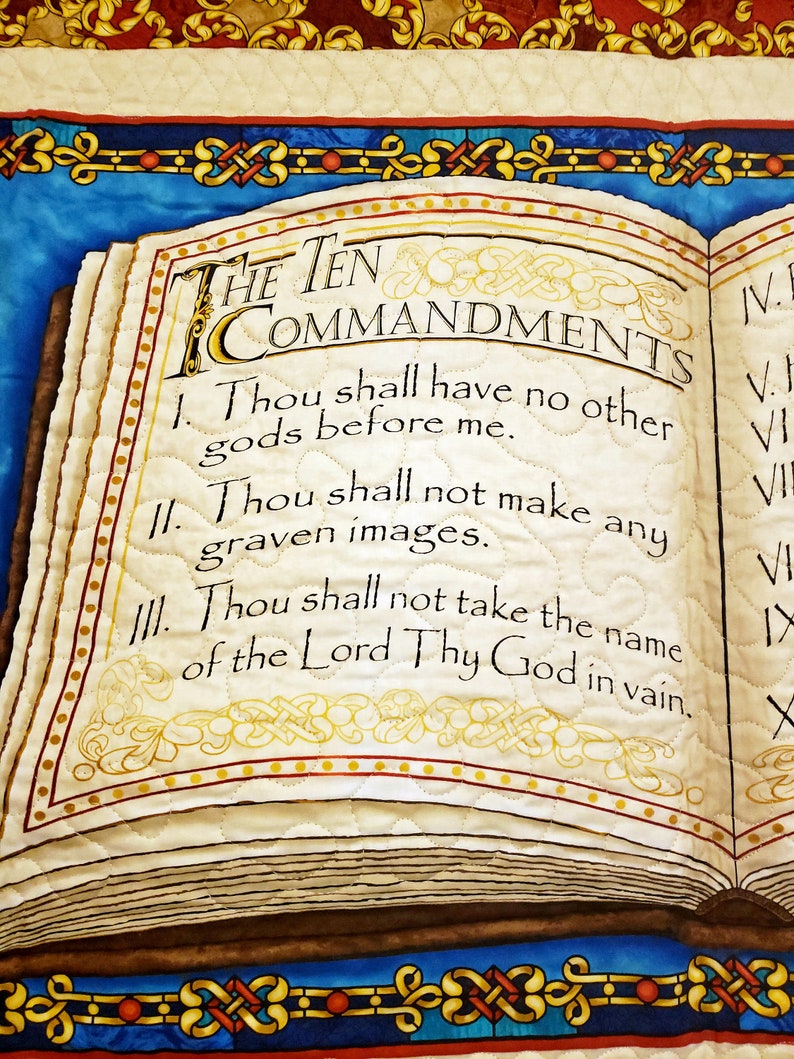 The Ten
Commandments
I. Thou shall have no other
gods before me.
II. Thou shall not make any
graven images.
III. Thou shall not take the name
of the Lord Thy God in vain.
IV.
V.